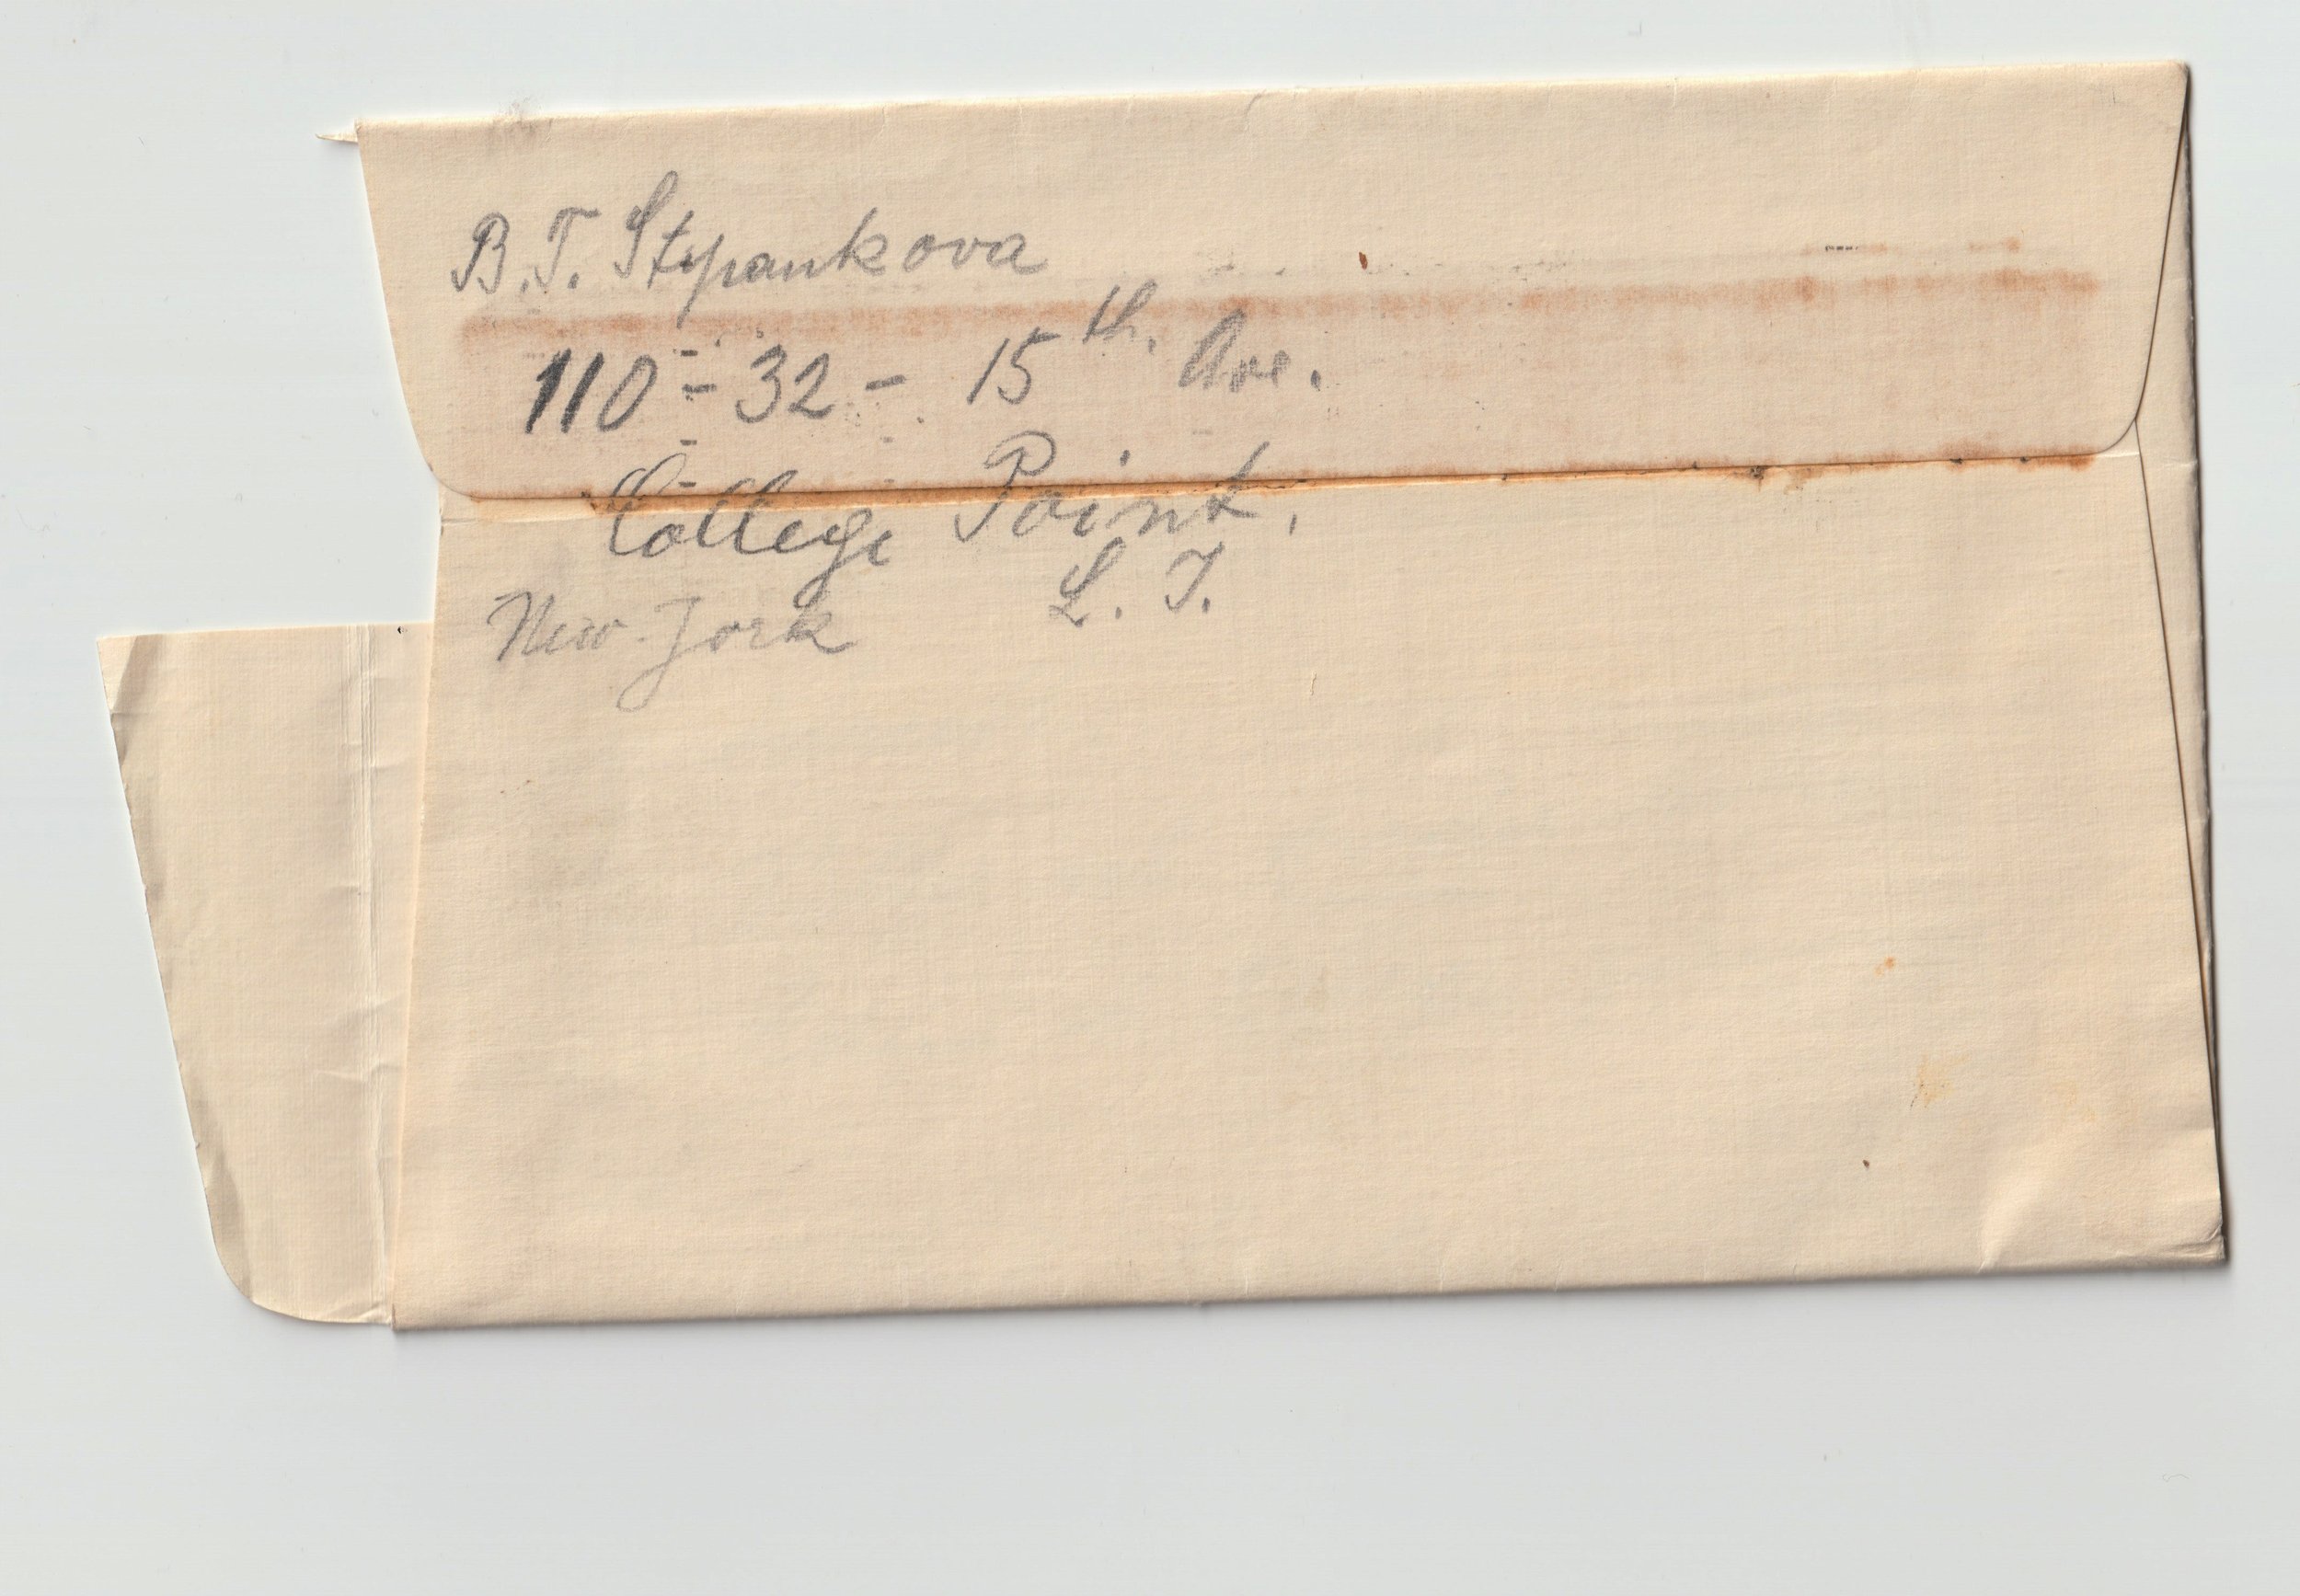 B.T. Stypankova
110 - 32 - 15th. Ave.
College Point,
L. I.
New-York